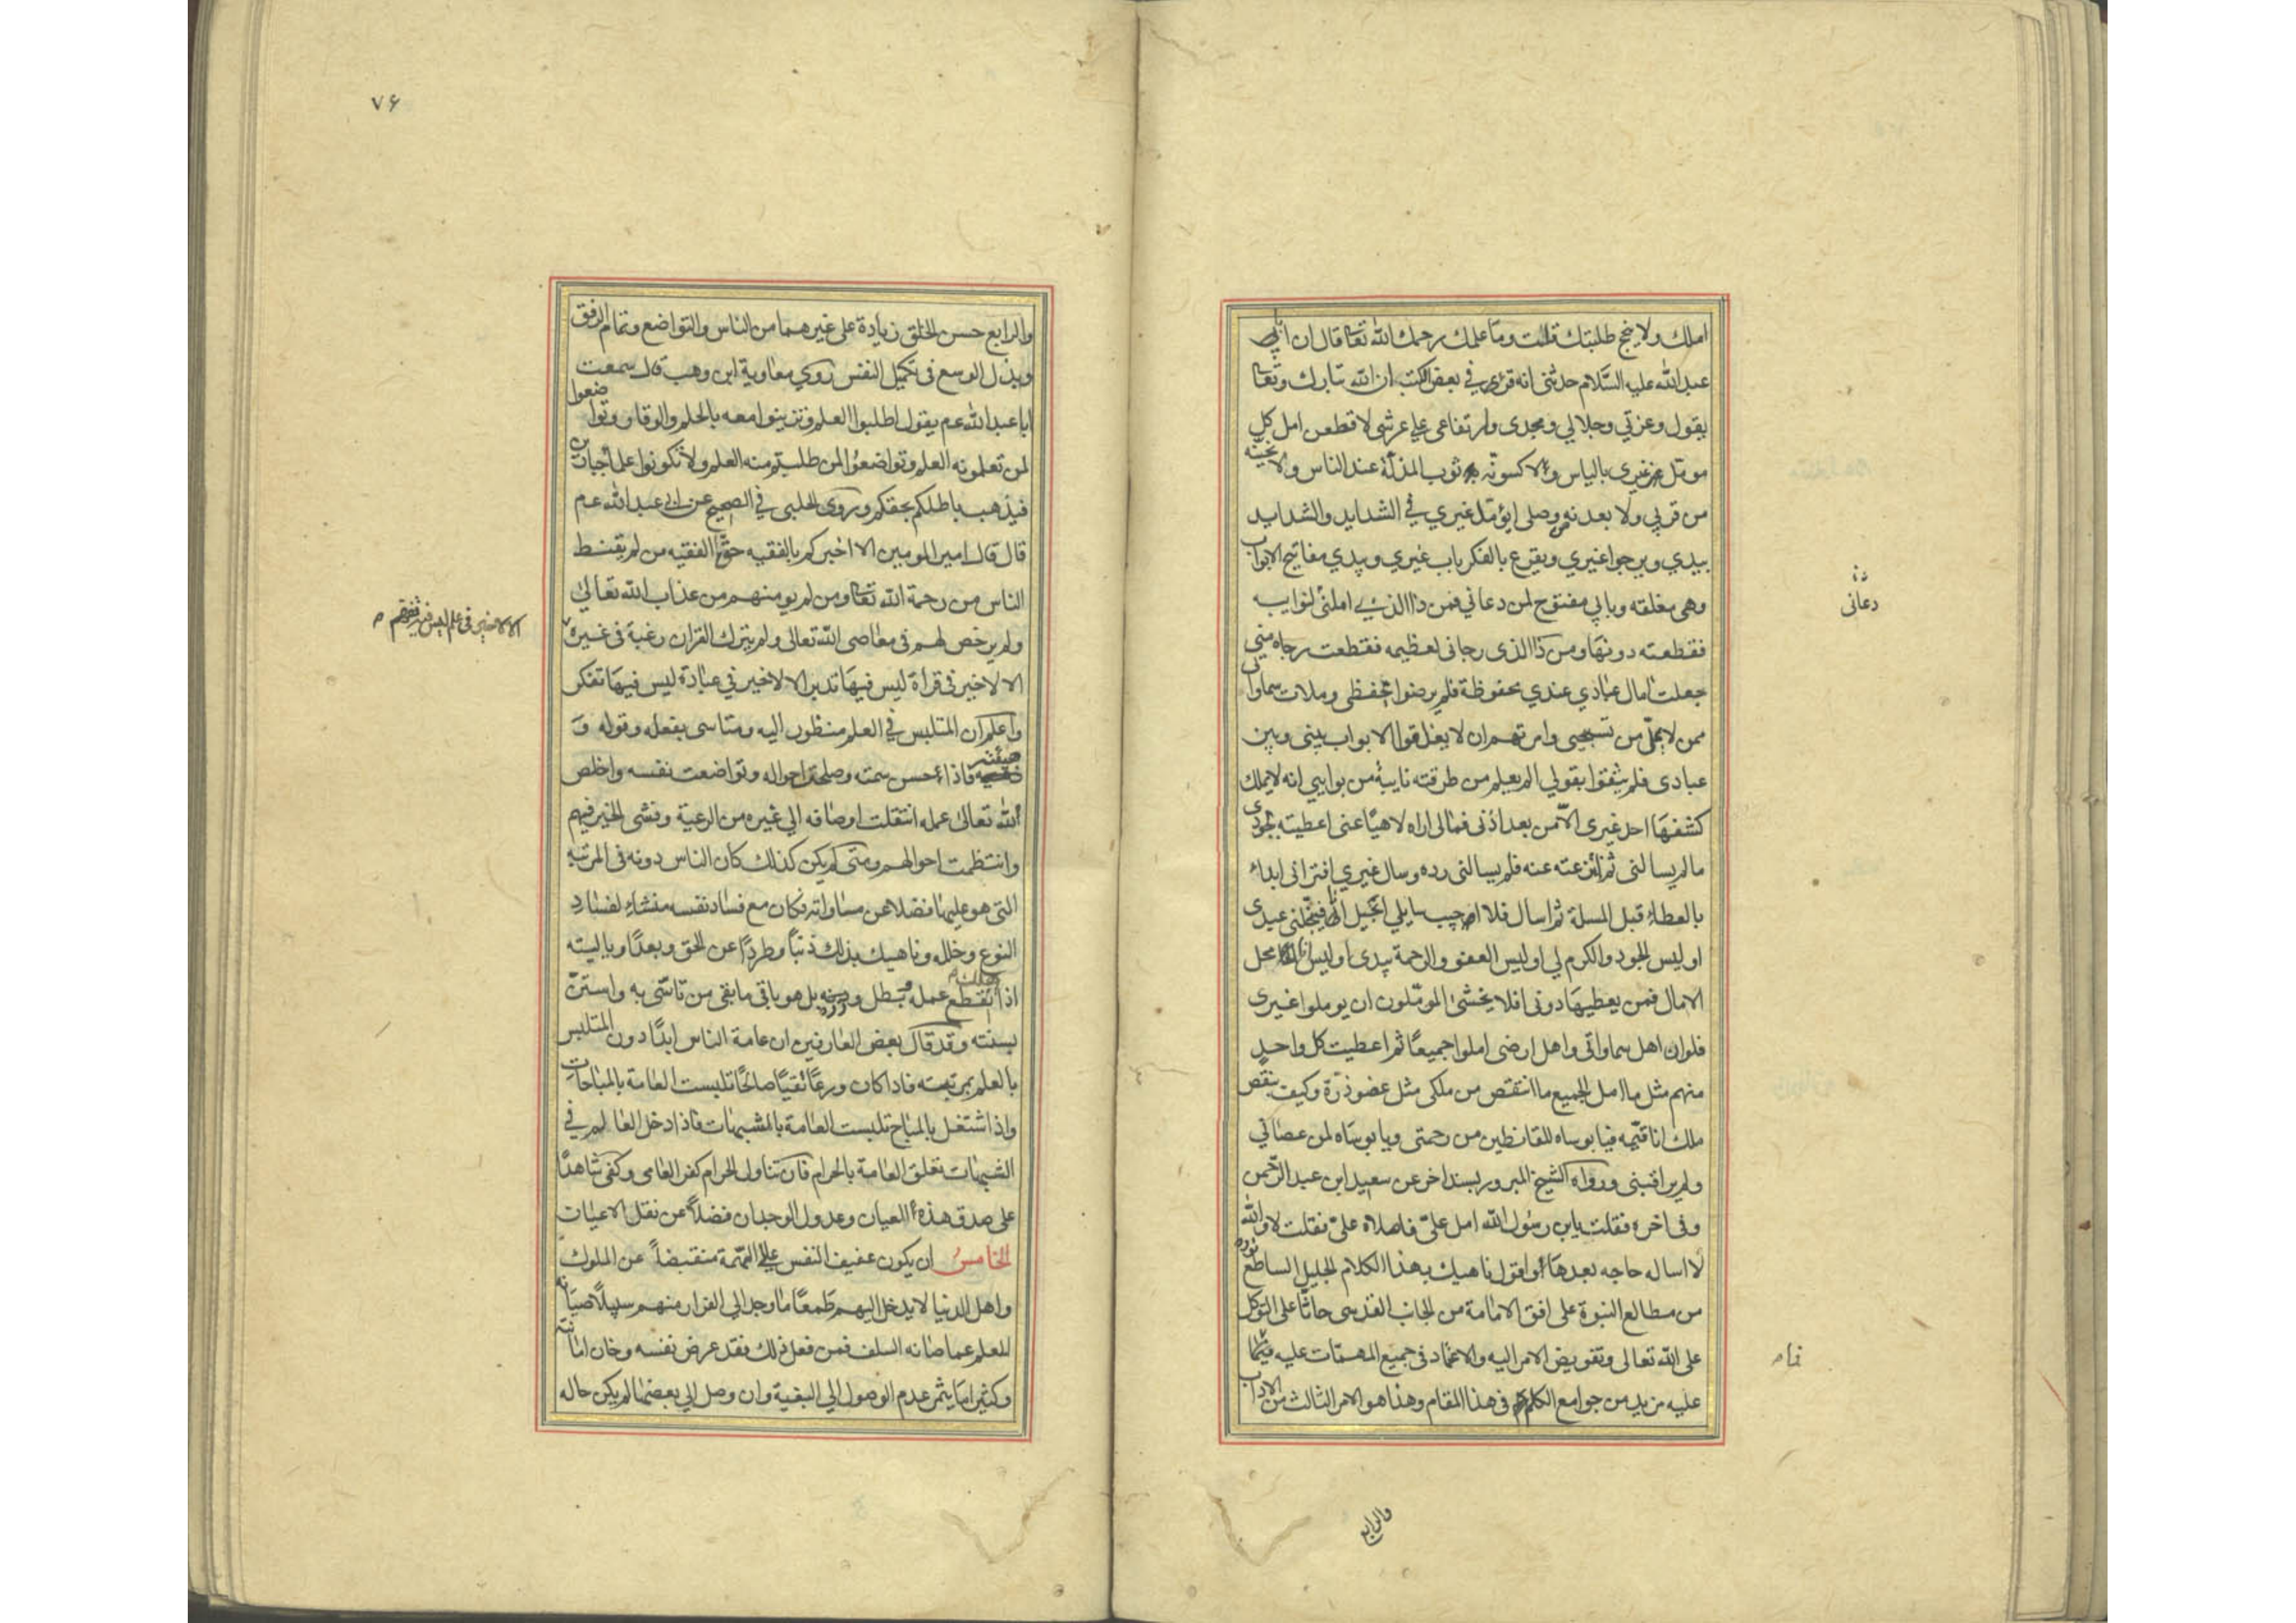 املك ولا ينجح طلبتك قلت وما علمك رحمك الله تعا قال ان ابا
عبد الله عليه السلام حدثنى انه قرئ في بعض الكتب ان الله تبارك وتعا
يقول وعزتي وجلالي ومجدى وارتفاعى على عرشى لاقطعن امل كل
مومل غيرى بالياس ولاكسونه ثوب المذلة عند الناس ولانحينه
من قربي ولابعدنه من وصلى ايؤمل غيري في الشدايد والشدايد
بيدي ويرجوا غيري ويقرع بالفكر باب غيري وبيدي مفاتيح الابواب
وهى مغلقه وبابي مفتوح لمن دعاني فمن ذا الذي املنى لنوايبه
فقطعته دونها ومن ذا الذى رجانى لعظيمه فقطعت رجاه منى
جعلت امال عبادي عندي محفوظة فلم يرضوا بحفظى وملات سماواتى
ممن لا يمل من تسبيحى وامرتهم ان لا يغلقوا الابواب بينى وبين
عبادى فلم يثقوا بقولي الم يعلم من طرقته نايبة من نوايبي انه لا يملك
كشفها احد غيرى الا من بعد اذنى فمالى اراه لاهيا عنى اعطيته بجودى
ما لم يسالنى ثم انتزعته عنه فلم يسالنى رده وسال غيري افترانى ابداء
بالعطاء قبل المسلة ثم اسال فلا اجيب سايلي ابخيل انا فيبخلنى عبدى
اوليس الجود والكرم لي اوليس العفو والرحمة بيدى اوليس انا محل
الامال فمن يعطيها دونى افلا يخشى المومّلون ان يوملوا غيرى
فلو ان اهل سماواتى واهل ارضى املوا جميعا ثم اعطيت كل واحد
منهم مثل ما امل الجميع ما انتقص من ملكى مثل عضو ذرة وكيف ينقص
ملك انا قيمه فيا بوساه للقانطين من رحمتى ويا بوساه لمن عصانى
ولم يراقبنى ورواه الشيخ المبرور بسند اخر عن سعيد ابن عبد الرحمن
وفى اخره فقلت يا بن رسول الله امل علىّ فاملاه علىّ فقلت لا والله
لا اساله حاجه بعدها اقول ناهيك بهذا الكلام الجليل الساطع نوره
من مطالع النبوة على افق الامامة من الجانب القدسى حاثا على التوكل
على الله تعالى وتفويض الامر اليه والاعتماد فى جميع المهمات عليه فما
عليه مزيد من جوامع الكلام فى هذا المقام وهذا هو الامر الثالث من الاداب
دعانى
والرابع
٧۶
والرابع حسن الخلق زيادة على غيرهما من الناس والتواضع وتمام الرفق
وبذل الوسع فى تكميل النفس روي معاوية ابن وهب قال سمعت
ابا عبد الله عم يقول اطلبوا العلم وتزينوا معه بالحلم والوقار وتواضعوا
لمن تعلمونه العلم وتواضعوا لمن طلبتم منه العلم ولا تكونوا علماء جبارين
فيذهب باطلكم بحقكم وروى الحلبى في الصحيح عن ابى عبد الله عم
قال قال امير المومنين الا اخبركم بالفقيه حق الفقيه من لم يقنط
الناس من رحمة الله تعا ومن لم يومنهم من عذاب الله تعالى
ولم يرخص لهم فى معاصى الله تعالى ولم يترك القران رغبة فى غيره
الا لا خير فى علم ليس فيه تفهم
الا لا خير فى قراة ليس فيها تدبر الا لا خير في عبادة ليس فيها تفكر
واعلم ان المتلبس في العلم منظور اليه ومتاسى بفعله وقوله و
هيئته فاذا حسن سمته وصلحت احواله وتواضعت نفسه واخلص
لله تعالى عمله انتقلت اوصافه الي غيره من الرعية وفشى الخير فيهم
وانتظمت احوالهم ومتى لم يكن كذلك كان الناس دونه فى المرتبة
التى هو عليها فضلا عن مساواته فكان مع فساد نفسه منشاء لفساد
النوع وخلله وناهيك بذلك ذنبا وطردا عن الحق وبعدا ويا ليته
اذا هلك انقطع عمله وبطل وزره بل هو باقى ما بقى من تاسّى به واستنّ
بسنته وقد قال بعض العارفين ان عامة الناس ابدا دون المتلبس
بالعلم بمرتبته فاذا كان ورعا تقيا صالحا تلبست العامة بالمباحات
واذا اشتغل بالمباح تلبست العامة بالمشبهات فاذا دخل العالم في
الشبهات تعلق العامة بالحرام فان تناول الحرام كفر العامى وكفى شاهدا
على صدق هذه العيان وعدول الوجدان فضلا عن نقل الاعيان
الخامس ان يكون عفيف النفس عالى الهمّة منقبضا عن الملوك
واهل الدنيا لا يدخل اليهم طمعا ما وجد الي الفرار منهم سبيلا صيانة
للعلم عما صانه السلف فمن فعل ذلك فقد عرض نفسه وخان امانته
وكثيرا ما يثمر عدم الوصول الي البغية وان وصل الي بعضها لم يكن حاله